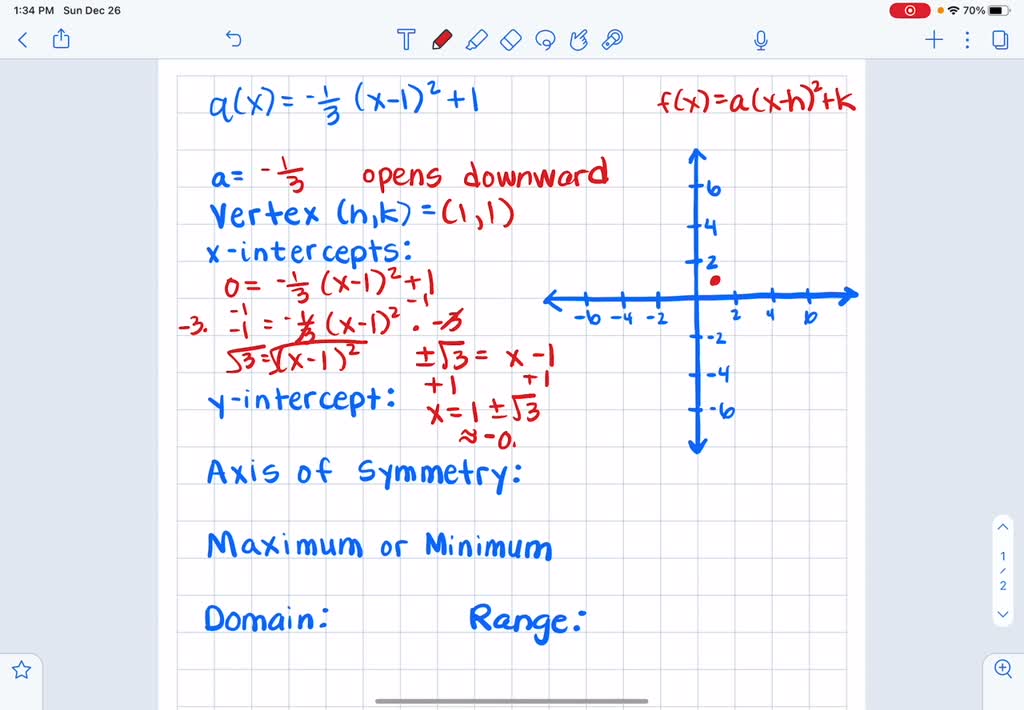 1:34 PM Sun Dec 26
70%
q(x) = -1/3 (x-1)² + 1
f(x) = a(x-h)² + k
a = -1/3 opens downward
Vertex (h,k) = (1,1)
x-intercepts:
0 = -1/3 (x-1)² + 1
-1 -1
-3 · -1 = -1/3 (x-1)² · -3
√3 = √(x-1)² ±√3 = x - 1
+1 +1
y-intercept: x = 1 ± √3
≈ -0.
Axis of Symmetry:
Maximum or Minimum
Domain: Range:
6
4
2
-6 -4 -2 2 4 6
-2
-4
-6
1
/
2